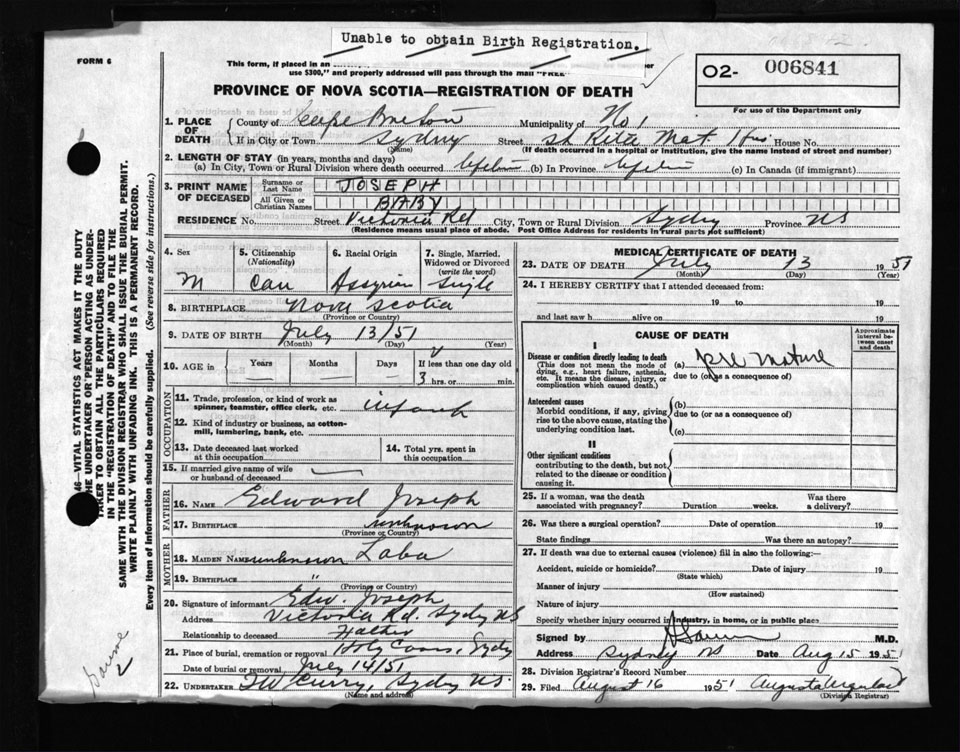 Unable to obtain Birth Registration.
FORM 6
This form, if placed in an
use $300," and properly addressed will pass through the mail "FREE"
PROVINCE OF NOVA SCOTIA—REGISTRATION OF DEATH
O2- 006841
For use of the Department only
1. PLACE OF DEATH
County of Cape Breton Municipality of No 1
If in City or Town Sydney Street St Rita Mat. Hos House No.
(Name) (If death occurred in a hospital or institution, give the name instead of street and number)
2. LENGTH OF STAY (in years, months and days)
(a) In City, Town or Rural Division where death occurred (b) In Province (c) In Canada (if immigrant)
3. PRINT NAME OF DECEASED
Surname or Last Name JOSEPH
All Given or Christian Names BABY
RESIDENCE No. Street Victoria Rd City, Town or Rural Division Sydney Province NS
(Residence means usual place of abode. Post Office Address for residents in rural parts not sufficient)
46—VITAL STATISTICS ACT MAKES IT THE DUTY
THE UNDERTAKER OR PERSON ACTING AS UNDER-
TAKER TO OBTAIN ALL THE PARTICULARS REQUIRED
IN THE "REGISTRATION OF DEATH" AND TO FILE THE
SAME WITH THE DIVISION REGISTRAR WHO SHALL ISSUE THE BURIAL PERMIT.
WRITE PLAINLY WITH UNFADING INK. THIS IS A PERMANENT RECORD.
Every item of information should be carefully supplied. (See reverse side for instructions.)
4. Sex
M
5. Citizenship
(Nationality)
Can
6. Racial Origin
Assyrian
7. Single, Married,
Widowed or Divorced
(write the word)
Single
8. BIRTHPLACE Nova Scotia
(Province or Country)
9. DATE OF BIRTH July 13/51
(Month) (Day) (Year)
10. AGE in Years Months Days If less than one day old
3 hrs. or min.
OCCUPATION
11. Trade, profession, or kind of work as
spinner, teamster, office clerk, etc. infant
12. Kind of industry or business, as cotton-
mill, lumbering, bank, etc.
13. Date deceased last worked
at this occupation
14. Total yrs. spent in
this occupation
15. If married give name of wife
or husband of deceased
FATHER
16. NAME Edward Joseph
17. BIRTHPLACE unknown
(Province or Country)
MOTHER
18. MAIDEN NAME unknown Laba
19. BIRTHPLACE "
(Province or Country)
20. Signature of informant Edw. Joseph
Address Victoria Rd. Sydney NS
Relationship to deceased Father
21. Place of burial, cremation or removal Holy Cross, Sydney
Date of burial or removal July 14/51
22. UNDERTAKER Curry, Sydney N.S.
(Name and address)
MEDICAL CERTIFICATE OF DEATH
23. DATE OF DEATH July 13 1951
(Month) (Day) (Year)
24. I HEREBY CERTIFY that I attended deceased from:
19 to 19
and last saw h alive on 19
CAUSE OF DEATH
Approximate
interval be-
tween onset
and death
I
Disease or condition directly leading to death
(This does not mean the mode of
dying, e.g., heart failure, asthenia,
etc. It means the disease, injury, or
complication which caused death.)
(a) pre mature
due to (or as a consequence of)
Antecedent causes
Morbid conditions, if any, giving
rise to the above cause, stating the
underlying condition last.
(b)
due to (or as a consequence of)
(c)
II
Other significant conditions
contributing to the death, but not
related to the disease or condition
causing it.
25. If a woman, was the death
associated with pregnancy? Duration weeks. Was there
a delivery?
26. Was there a surgical operation? Date of operation 19
State findings Was there an autopsy?
27. If death was due to external causes (violence) fill in also the following:
Accident, suicide or homicide? Date of injury 19
(State which)
Manner of injury
(How sustained)
Nature of injury
Specify whether injury occurred in industry, in home, or in public place
Signed by M.D.
Address Sydney NS Date Aug 15 1951
28. Division Registrar's Record Number
29. Filed August 16 1951 Augusta
(Division Registrar)
2